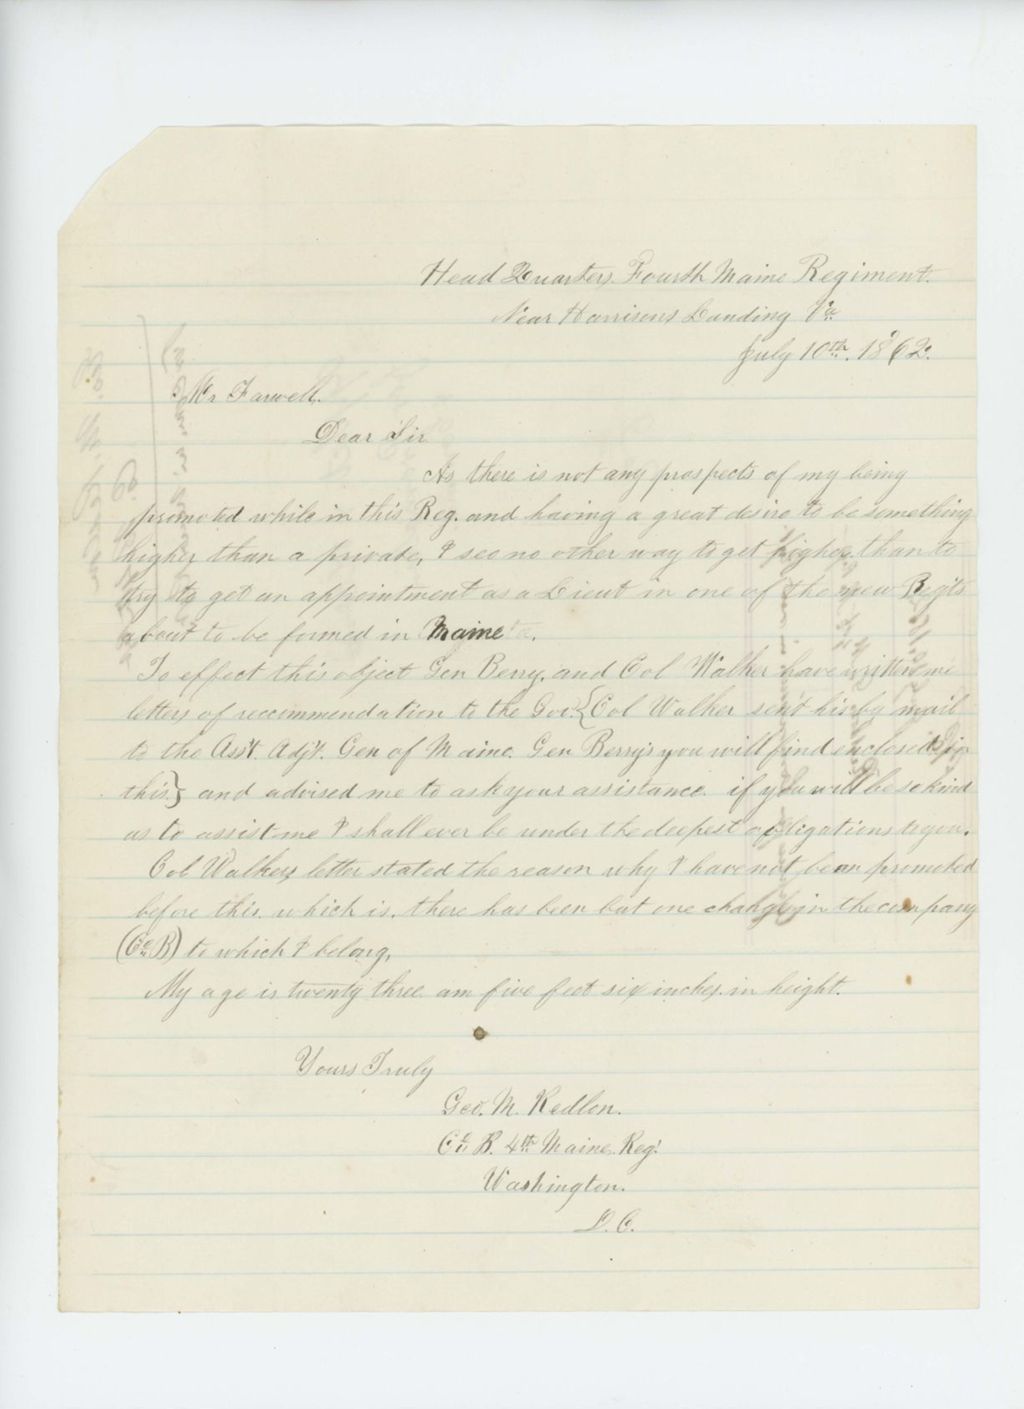 Head Quarters Fourth Maine Regiment.
Near Harrisons Landing Va
July 10th. 1862.
Mr Farwell.
Dear Sir
As there is not any prospects of my being
promoted while in this Reg. and having a great desire to be something
higher than a private, I see no other way to get higher than to
try to get an appointment as a Lieut in one of the new Reg'ts
about to be formed in Maine.
To effect this object Gen Berry, and Col Walker have written me
letters of reccommendation to the Gov. {Col Walker sent his by mail
to the Ass't. Adj't. Gen of Maine. Gen Berry's you will find enclosed in
this} and advised me to ask your assistance. if you will be so kind
as to assist me I shall ever be under the deepest obligations to you.
Col Walkers letter stated the reason why I have not been promoted
before this. which is. there has been but one change in the company
(Co B) to which I belong,
My age is twenty three. am five feet six inches in height.
Yours Truly
Geo. M. Redlon.
Co B. 4th Maine Reg.
Washington.
D. C.